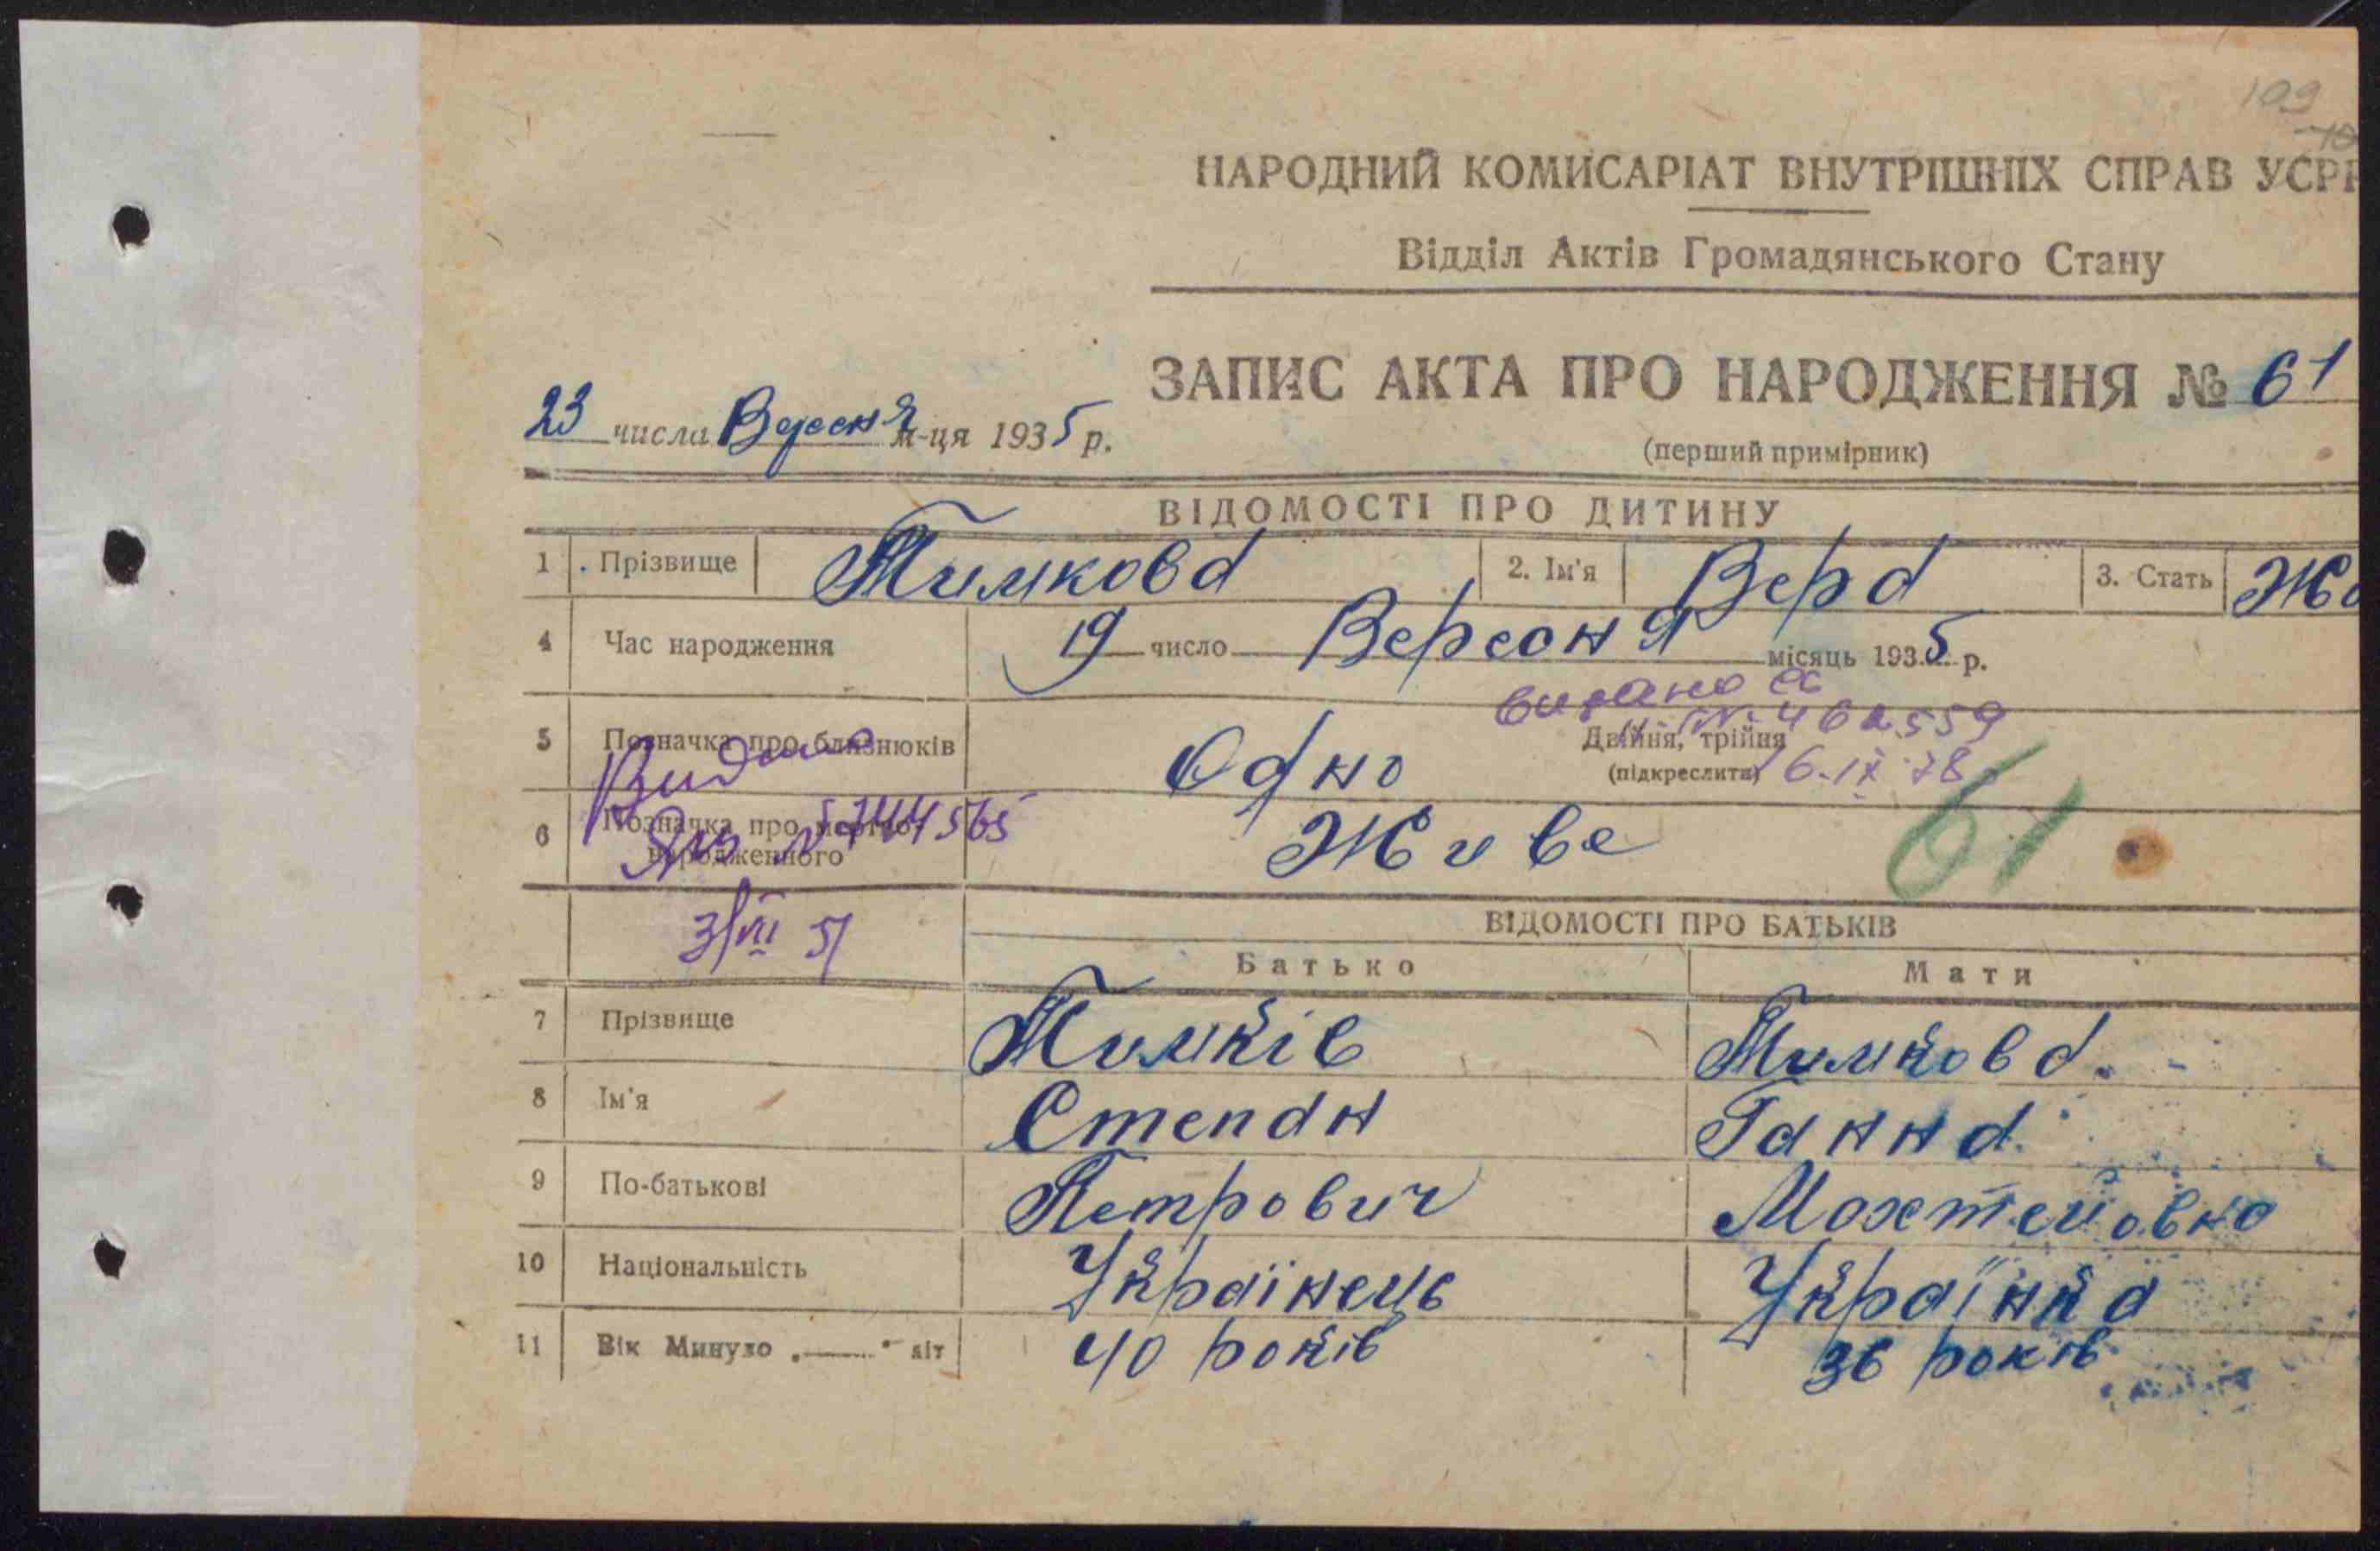 109
НАРОДНИЙ КОМІСАРІАТ ВНУТРІШНІХ СПРАВ УСРР
Відділ Актів Громадянського Стану
ЗАПИС АКТА ПРО НАРОДЖЕННЯ № 61
23 числа Вересня м-ця 1935 р.
(перший примірник)
ВІДОМОСТІ ПРО ДИТИНУ
1 Прізвище Тимкова 2. Ім'я Вера 3. Стать Жі
4 Час народження 19 число Вересня місяць 1935 р.
видано
5 Позначка про близнюків Одно Двійня, трійня
(підкреслити) 6.IX.78
Видано
6 Позначка про мертво- Живе 61
народженного
3/VII 51
ВІДОМОСТІ ПРО БАТЬКІВ
Батько Мати
7 Прізвище Тимків Тимкова
8 Ім'я Степан Ганна
9 По-батькові Петрович
10 Національність Українець Українка
11 Вік Минуло „——" літ 40 років 36 років